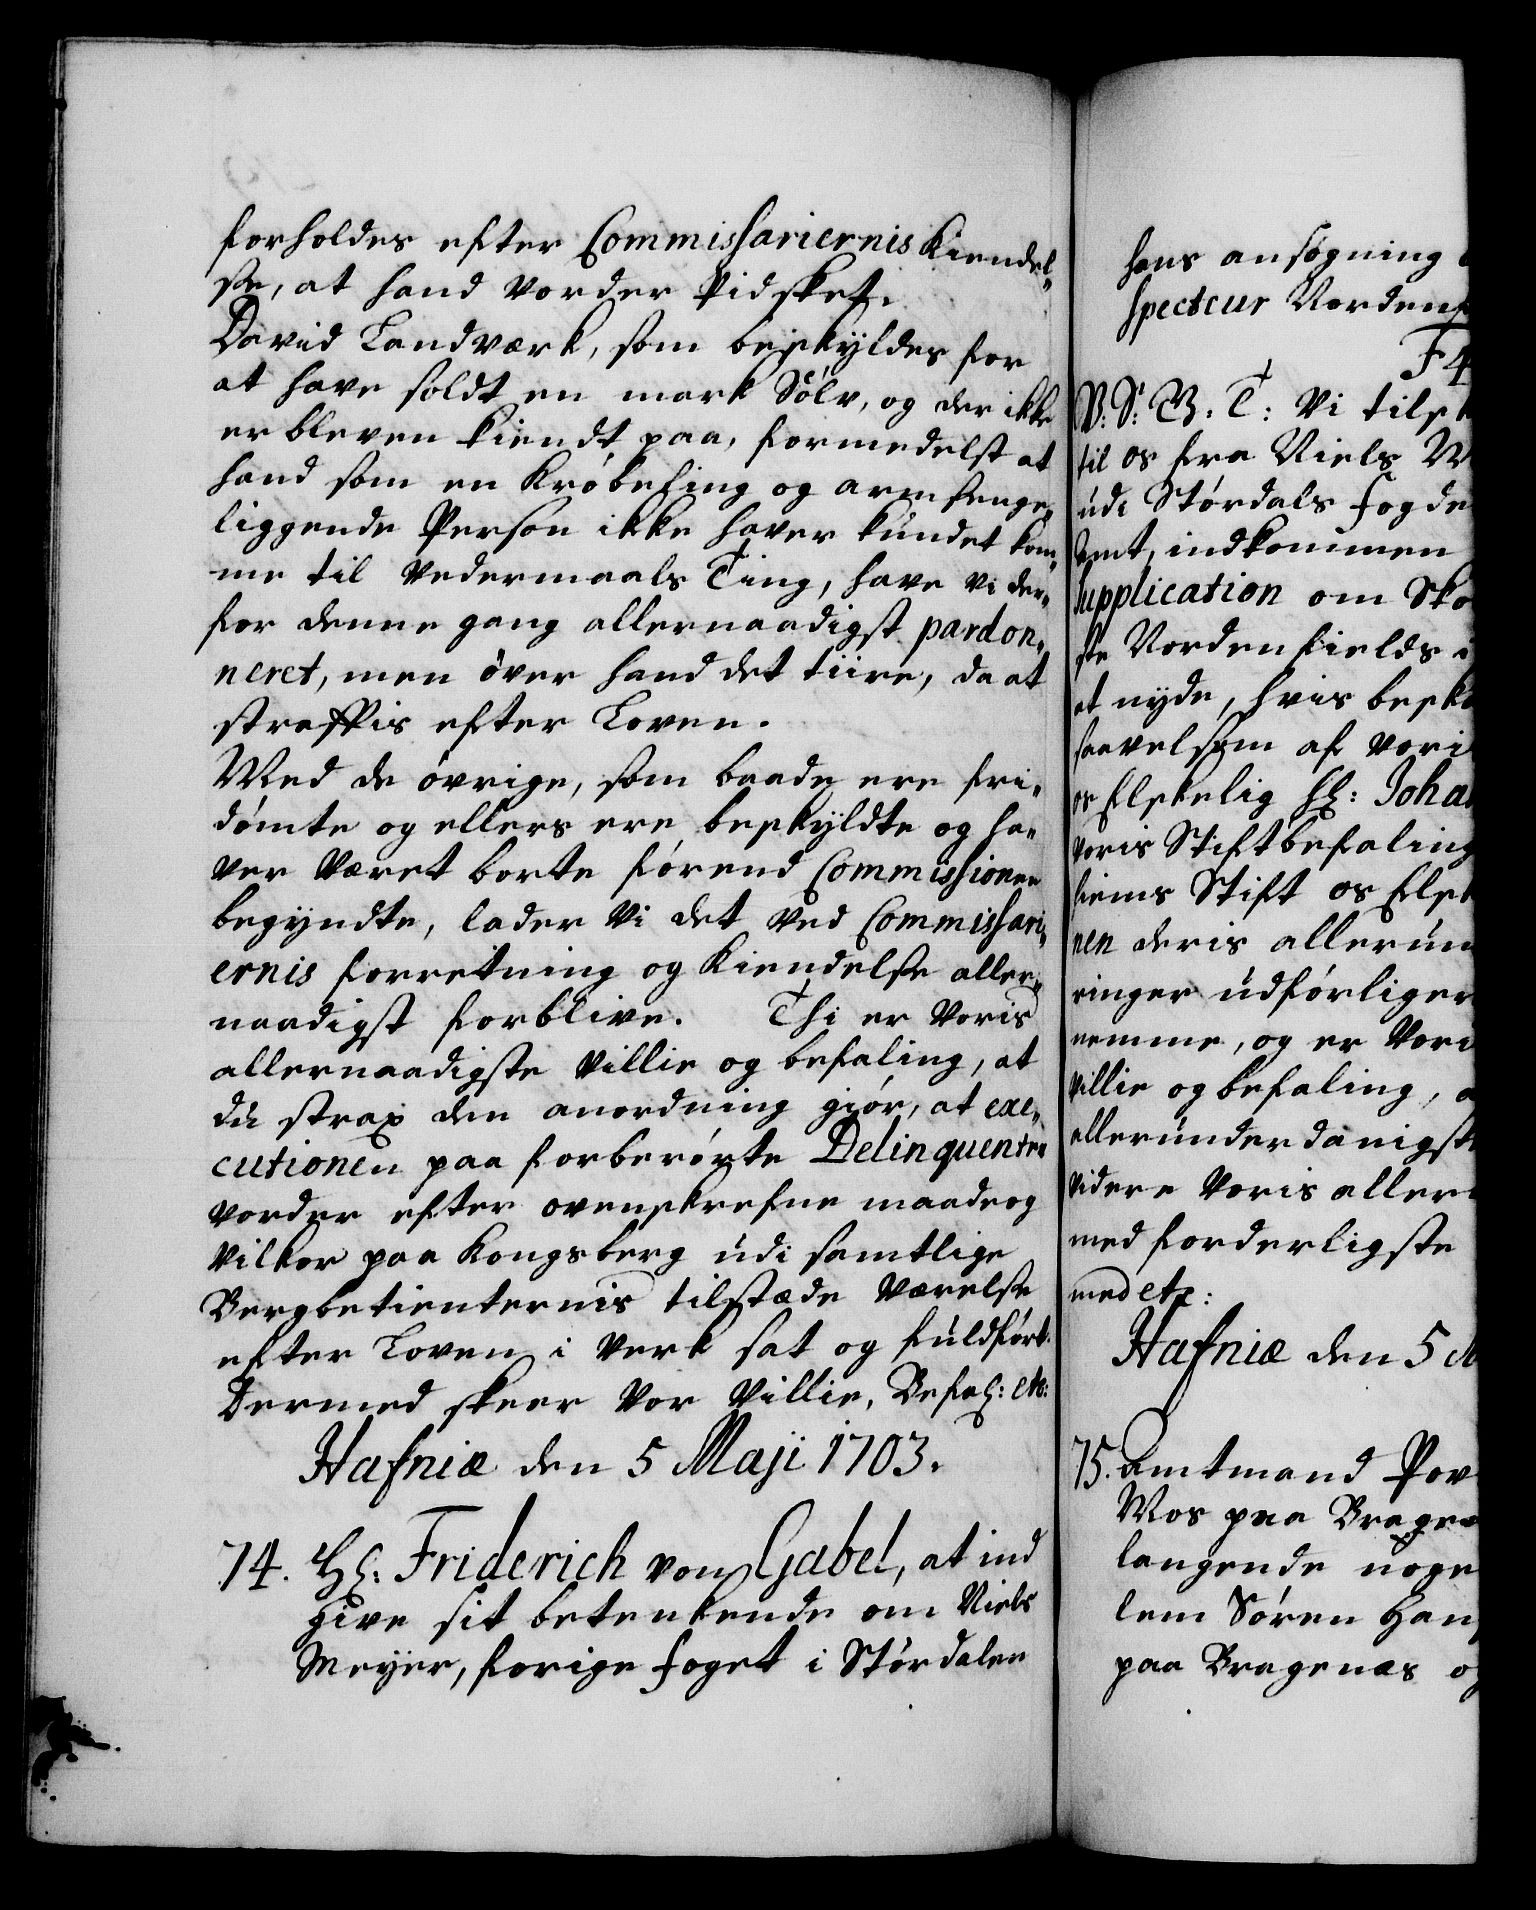 forholdes efter Commissariernis Kiendel-
se, at hand vorder Pidsket.
David Landværk, som beskyldes for
at have soldt en mark Sölv, og der ikke
er bleven kiendt paa, formedelst at
hand som en Kröbeling og arm senge-
liggende Person ikke haver kundet kom-
me til Vedermaals Ting, have vi der-
for denne gang allernaadigst pardon-
neret, men över hand det tiire, da at
straffis efter Loven.
Med de övrige, som baade ere fri-
dömte og ellers ere beskyldte og ha-
ver været borte förend Commissionen
begyndte, lader Vi det ved Commissari-
ernis forretning og Kiendelse aller-
naadigst forblive. Thi er Voris
allernaadigste Villie og befaling, at
du strax den anordning giör, at exe-
cutionen paa forberörte Delinquenter
vorder efter ovenskrefne maade og
Vilkor paa Kongsberg udi samtlige
Bergbetienternis tilstæde Værelse
efter Loven i Verk sat og fuldfört.
Dermed skeer Vor Villie, Befal: etc:
Hafniæ den 5 Maji 1703.
74. Hl: Friderich von Gabel, at ind
give sit betenkende om Niels
Meyer, forige foget i Stördalen
hans ansögning
specteur Norden
F4
V. S: G. T: Vi tilsk
til os fra Niels M
udi Stördals Fogde
Amt, indkommen
Supplication om Sko
ste Nordenfields i
at nyde, hvis besk
saavelsom af vori
os Elskelig Hl: Joha
voris Stiftbefaling
hiems Stift os Elsk
nen deris allerun
ringer udförliger
nemme, og er Vori
Villie og befaling, a
allerunderdanigst
videre Voris aller
med forderligste
med etc:
Hafniæ den 5 M
75. Amtmand Pov
Mos paa Bragen
langende noge
lem Sören Hans
paa Bragenæs og